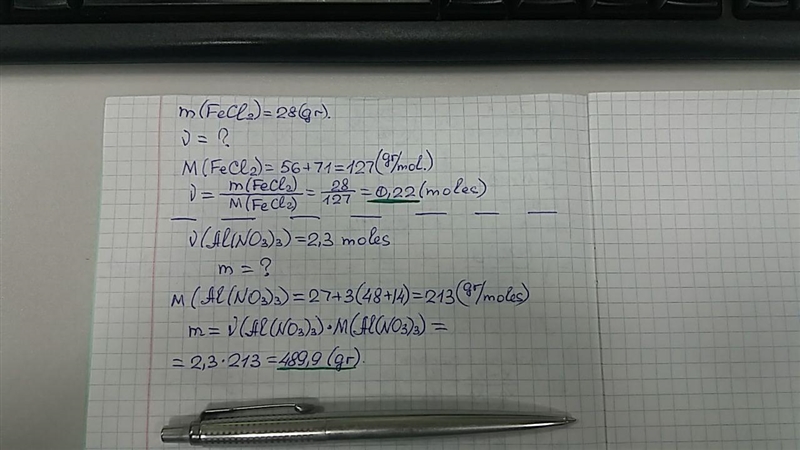 m(FeCl₂)=28(gr).
ν=?
M(FeCl₂)=56+71=127(gr/mol.)
ν=m(FeCl₂)/M(FeCl₂)=28/127=0,22(moles)
ν(Al(NO₃)₃)=2,3 moles
m=?
M(Al(NO₃)₃)=27+3(48+14)=213(gr/moles)
m=ν(Al(NO₃)₃)·M(Al(NO₃)₃)=
=2,3·213=489,9(gr).